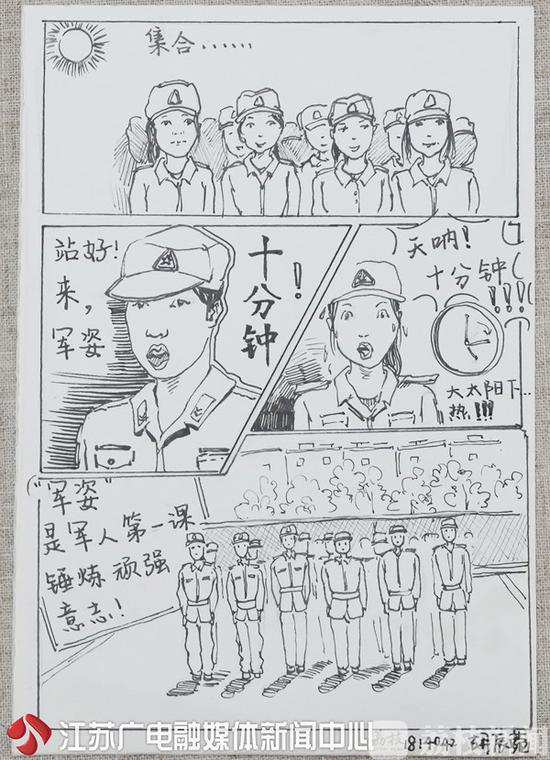 集合......
站好!
来,
军姿
十分钟!
天呐!
十分钟(
!!!(
大太阳下...
热!!!
"军姿"
是军人第一课
锤炼顽强
意志!
江苏广电融媒体新闻中心